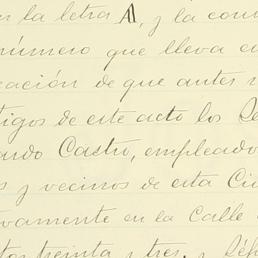 n la letra A, y la con
número que lleva e
cación de que antes
tigos de este acto los Se
ardo Castro, empleado
s y vecinos de esta Ci
ivamente en la Calle
tos treinta y tres, y